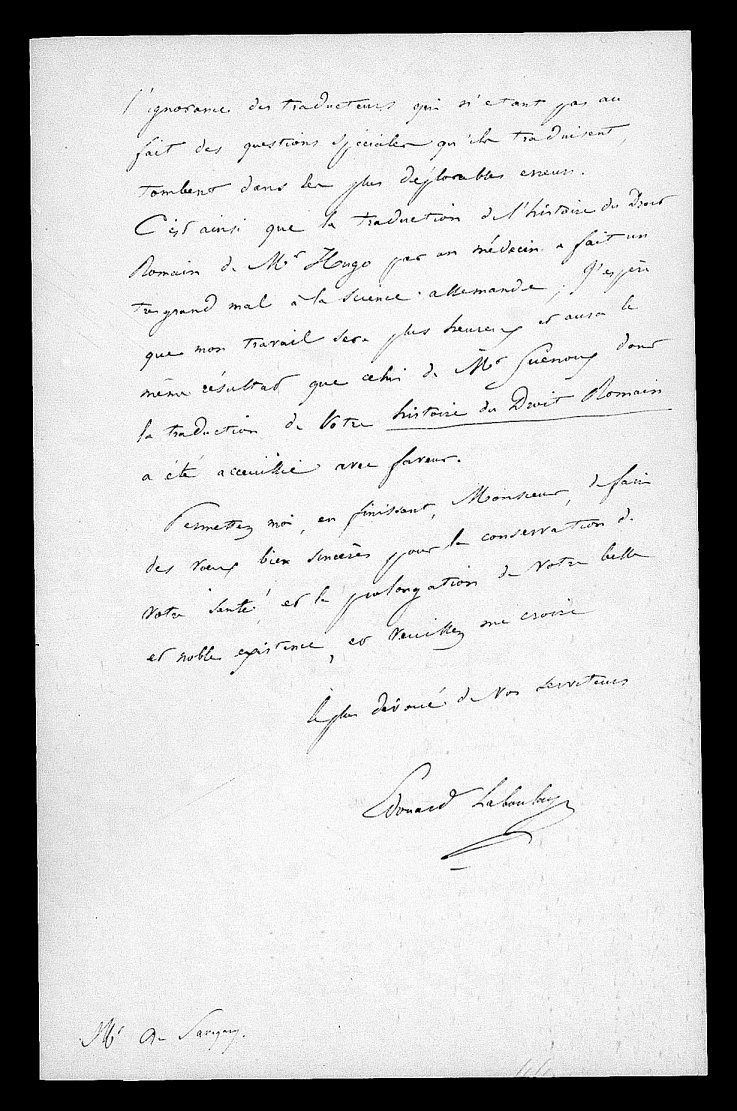 l'ignorance des traducteurs qui n'etant pas au
fait des questions spéciales qu'ils traduisent,
tombent dans les plus déplorables erreurs.
C'est ainsi que la traduction de l'histoire du Droit
Romain de Mr Hugo par un médecin a fait un
tres grand mal à la science allemande; J'espère
que mon travail sera plus heureux et aura le
même résultat que celui de Mr Guenoux dont
la traduction de Votre histoire du Droit Romain
a été accueillie avec faveur.
Permettez moi, en finissant, Monsieur, de faire
des vœux bien sincères pour la conservation de
votre santé, et la prolongation de votre belle
et noble existence, et veuillez me croire
le plus dévoué de Vos serviteurs
Edouard Laboulaye
Mr de Savigny.